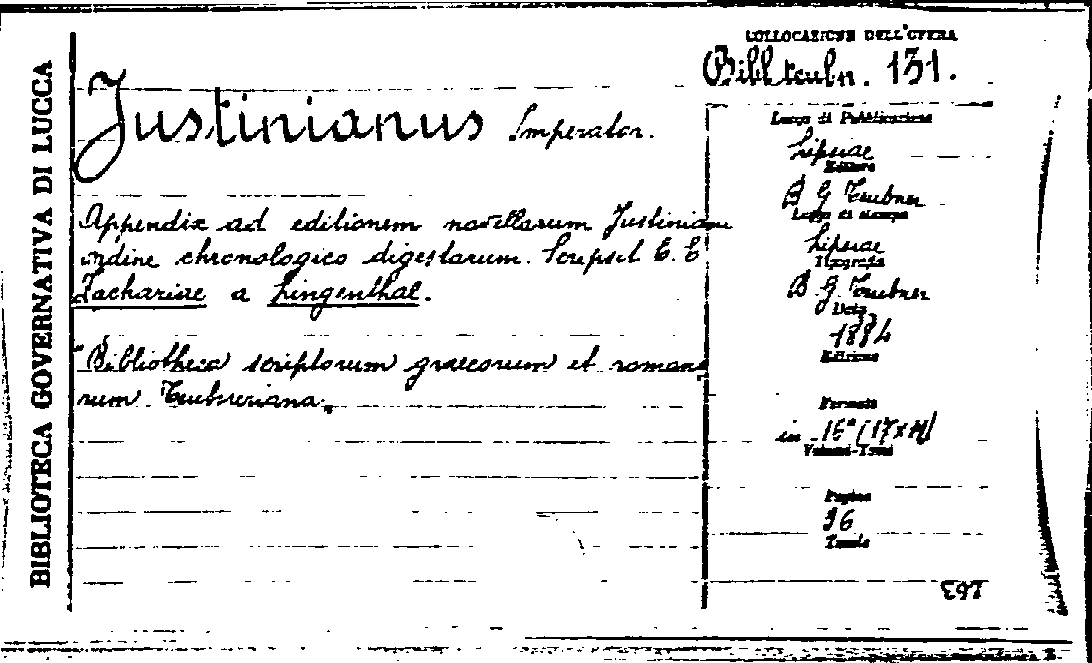 BIBLIOTECA GOVERNATIVA DI LUCCA
COLLOCAZIONE DELL'OPERA
Bibl. teubn. 131.
Justinianus Imperator.
Appendix ad editionem novellarum Justiniani
ordine chronologico digestarum. Scripsit C. E.
Zachariae a Lingenthal.
"Bibliotheca scriptorum graecorum et romano
rum Teubneriana„
Luogo di Pubblicazione
Lipsiae
Editore
B G Teubner
Luogo di stampa
Lipsiae
Tipografia
B G Teubner
Data
1884
Edizione
Formato
in 16°
Volumi-Tomi
Pagine
36
Tavole